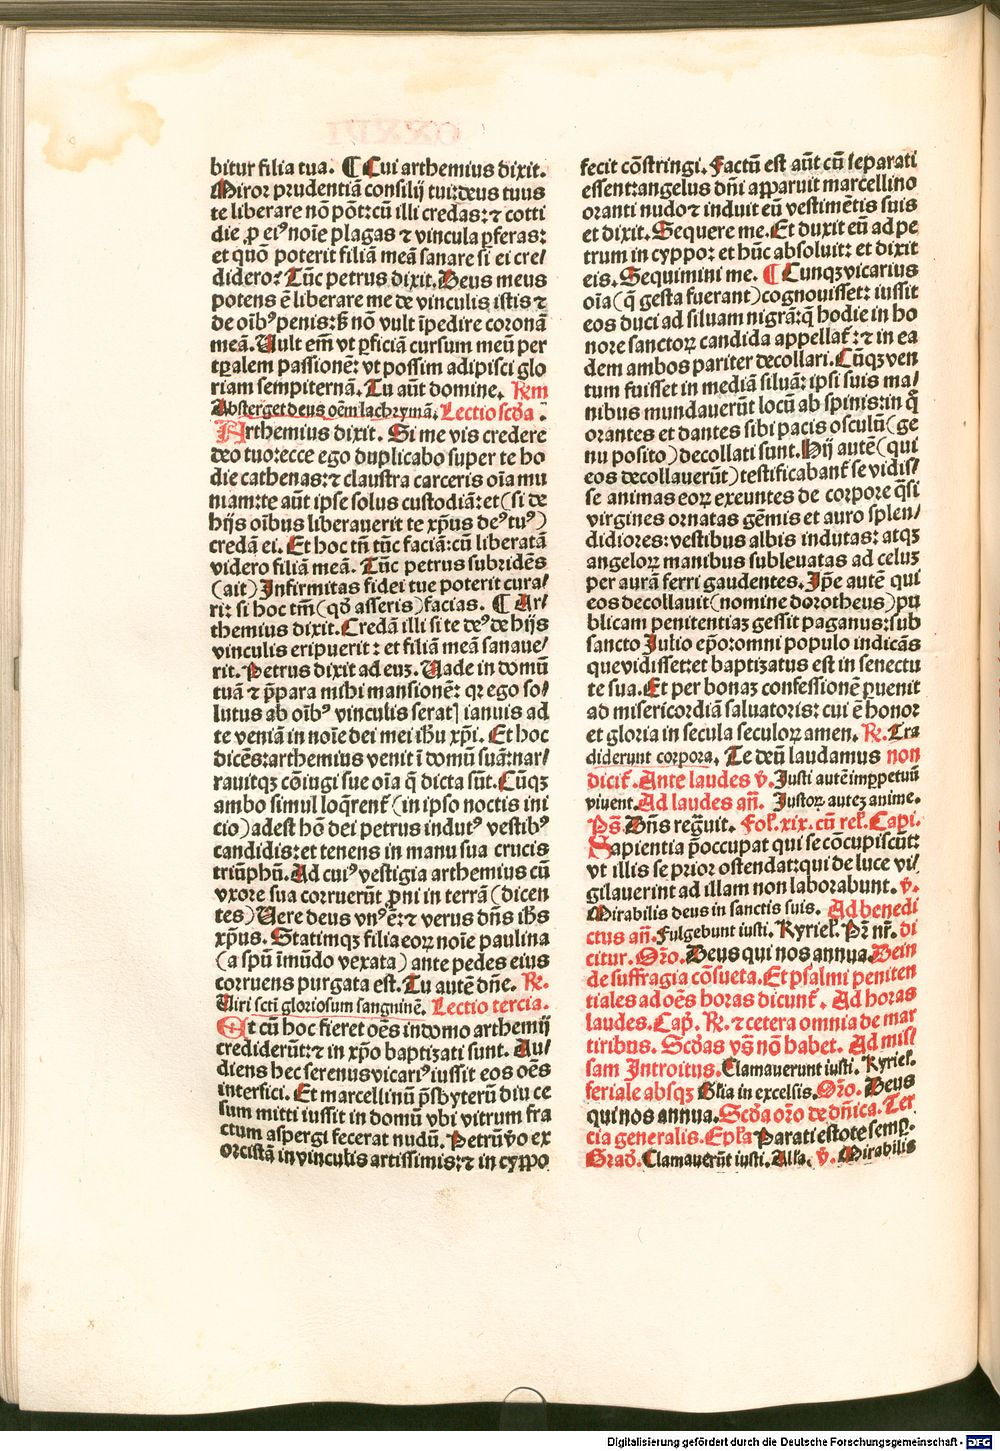 bitur filia tua. ¶ Cui arthemius dixit.
Miror prudentiā consilij tui: deus tuus
te liberare nō pōt: cū illi credas: ⁊ cotti
die ꝓ eiꝰ noīe plagas ⁊ vincula ꝑferas:
et quō poterit filiā meā sanare si ei cre/
didero? Tūc petrus dixit. Deus meus
potens ē liberare me de vinculis istis ⁊
de oībꝰ penis: sꝫ nō vult īpedire coronā
meā. Uult em̄ vt ꝑficiā cursum meū per
tꝑalem passionē: vt possim adipisci glo
riam sempiternā. Tu aūt domine. Rm̄
Absterget deus oēm lachrymā. Lectio scďa.
Arthemius dixit. Si me vis credere
deo tuo: ecce ego duplicabo super te ho
die cathenas: ⁊ claustra carceris oīa mu
niam: te aūt ipse solus custodiā: et (si de
hijs oībus liberauerit te xp̄us deꝰ tuꝰ)
credā ei. Et hoc tn̄ tūc faciā: cū liberatā
videro filiā meā. Tūc petrus subridēs
(ait) Infirmitas fidei tue poterit cura/
ri: si hoc tm̄ (qď asseris) facias. ¶ Ar/
themius dixit. Credā illi si te deꝰ de hijs
vinculis eripuerit: et filiā meā sanaue/
rit. Petrus dixit ad euꝫ. Uade in domū
tuā ⁊ p̄para mihi mansionē: qr ego so/
lutus ab oībꝰ vinculis serat] ianuis ad
te veniā in noīe dei mei ihū xp̄i. Et hoc
dicēs: arthemius venit ī domū suā: nar/
rauitqꝫ cōiugi sue oīa q̄ dicta sūt. Cūqꝫ
ambo simul loq̄rent̄ (in ipso noctis ini
cio) adest hō dei petrus indutꝰ vestibꝰ
candidis: et tenens in manu sua crucis
triūphū. Ad cuiꝰ vestigia arthemius cū
vxore sua corruerūt ꝓni in terrā (dicen
tes) Uere deus vnꝰ ē: ⁊ verus dn̄s ihs̄
xp̄us. Statimqꝫ filia eoꝝ noīe paulina
(a spū īmūdo vexata) ante pedes eius
corruens purgata est. Tu autē dn̄e. R.
Uiri sctī gloriosum sanguinē. Lectio tercia.
Et cū hoc fieret oēs in domo arthemij
crediderūt: ⁊ in xp̄o baptizati sunt. Au/
diens hec serenus vicariꝰ iussit eos oēs
interfici. Et marcellinū p̄sbyterū diu ce
sum mitti iussit in domū vbi vitrum fra
ctum aspergi fecerat nudū. Petrū v̊o ex
orcistā in vinculis artissimis: ⁊ in cyppo
fecit cōstringi. Factū est aūt cū separati
essent: angelus dn̄i apparuit marcellino
oranti nudo ⁊ induit eū vestimētis suis
et dixit. Sequere me. Et duxit eū ad pe
trum in cyppo: et hūc absoluit: et dixit
eis. Sequimini me. ¶ Cunqꝫ vicarius
oīa (q̄ gesta fuerant) cognouisset: iussit
eos duci ad siluam nigrā: q̄ hodie in ho
nore sanctoꝝ candida appellat̄: ⁊ in ea
dem ambos pariter decollari. Cūqꝫ ven
tum fuisset in mediā siluā: ipsi suis ma/
nibus mundauerūt locū ab spinis: in q̄
orantes et dantes sibi pacis osculū (ge
nu posito) decollati sunt. Hij autē (qui
eos decollauerūt) testificabant̄ se vidis/
se animas eoꝝ exeuntes de corpore q̄si
virgines ornatas gēmis et auro splen/
didiores: vestibus albis indutas: atqꝫ
angeloꝝ manibus subleuatas ad celuꝫ
per aurā ferri gaudentes. Ip̄e autē qui
eos decollauit (nomine dorotheus) pu
blicam penitentiaꝫ gessit paganus: sub
sancto Julio ep̄o: omni populo indicās
que vidisset: et baptizatus est in senectu
te sua. Et per bonaꝫ confessionē ꝑuenit
ad misericordiā saluatoris: cui ē honor
et gloria in secula seculoꝝ amen. R. Tra
diderunt corpora. Te deū laudamus non
dicit̄. Ante laudes v̄. Justi autē imꝑpetuū
viuent. Ad laudes an̄. Justoꝝ auteꝫ anime.
Ps̄. Dn̄s regͣuit. Fol. xix. cū rel. Capi.
Sapientia p̄occupat qui se cōcupiscūt:
vt illis se prior ostendat: qui de luce vi/
gilauerint ad illam non laborabunt. v̄.
Mirabilis deus in sanctis suis. Ad benedi
ctus an̄. Fulgebunt iusti. Kyriel. Pr̄ nr̄. di
citur. Oro. Deus qui nos annua. Dein
de suffragia cōsueta. Et psalmi peniten
tiales ad oēs horas dicunt̄. Ad horas
laudes. Cap. R. ⁊ cetera omnia de mar
tiribus. Scďas vs̄ nō habet. Ad mis/
sam Introitus. Clamauerunt iusti. Kyriel.
feriale absqꝫ Glia in excelsis. Oro. Deus
qui nos annua. Scďa oro de dn̄ica. Ter
cia generalis. Epl̄a Parati estote semp.
Graď. Clamauerūt iusti. Alla. v̄. Mirabilis
Digitalisierung gefördert durch die Deutsche Forschungsgemeinschaft - DFG